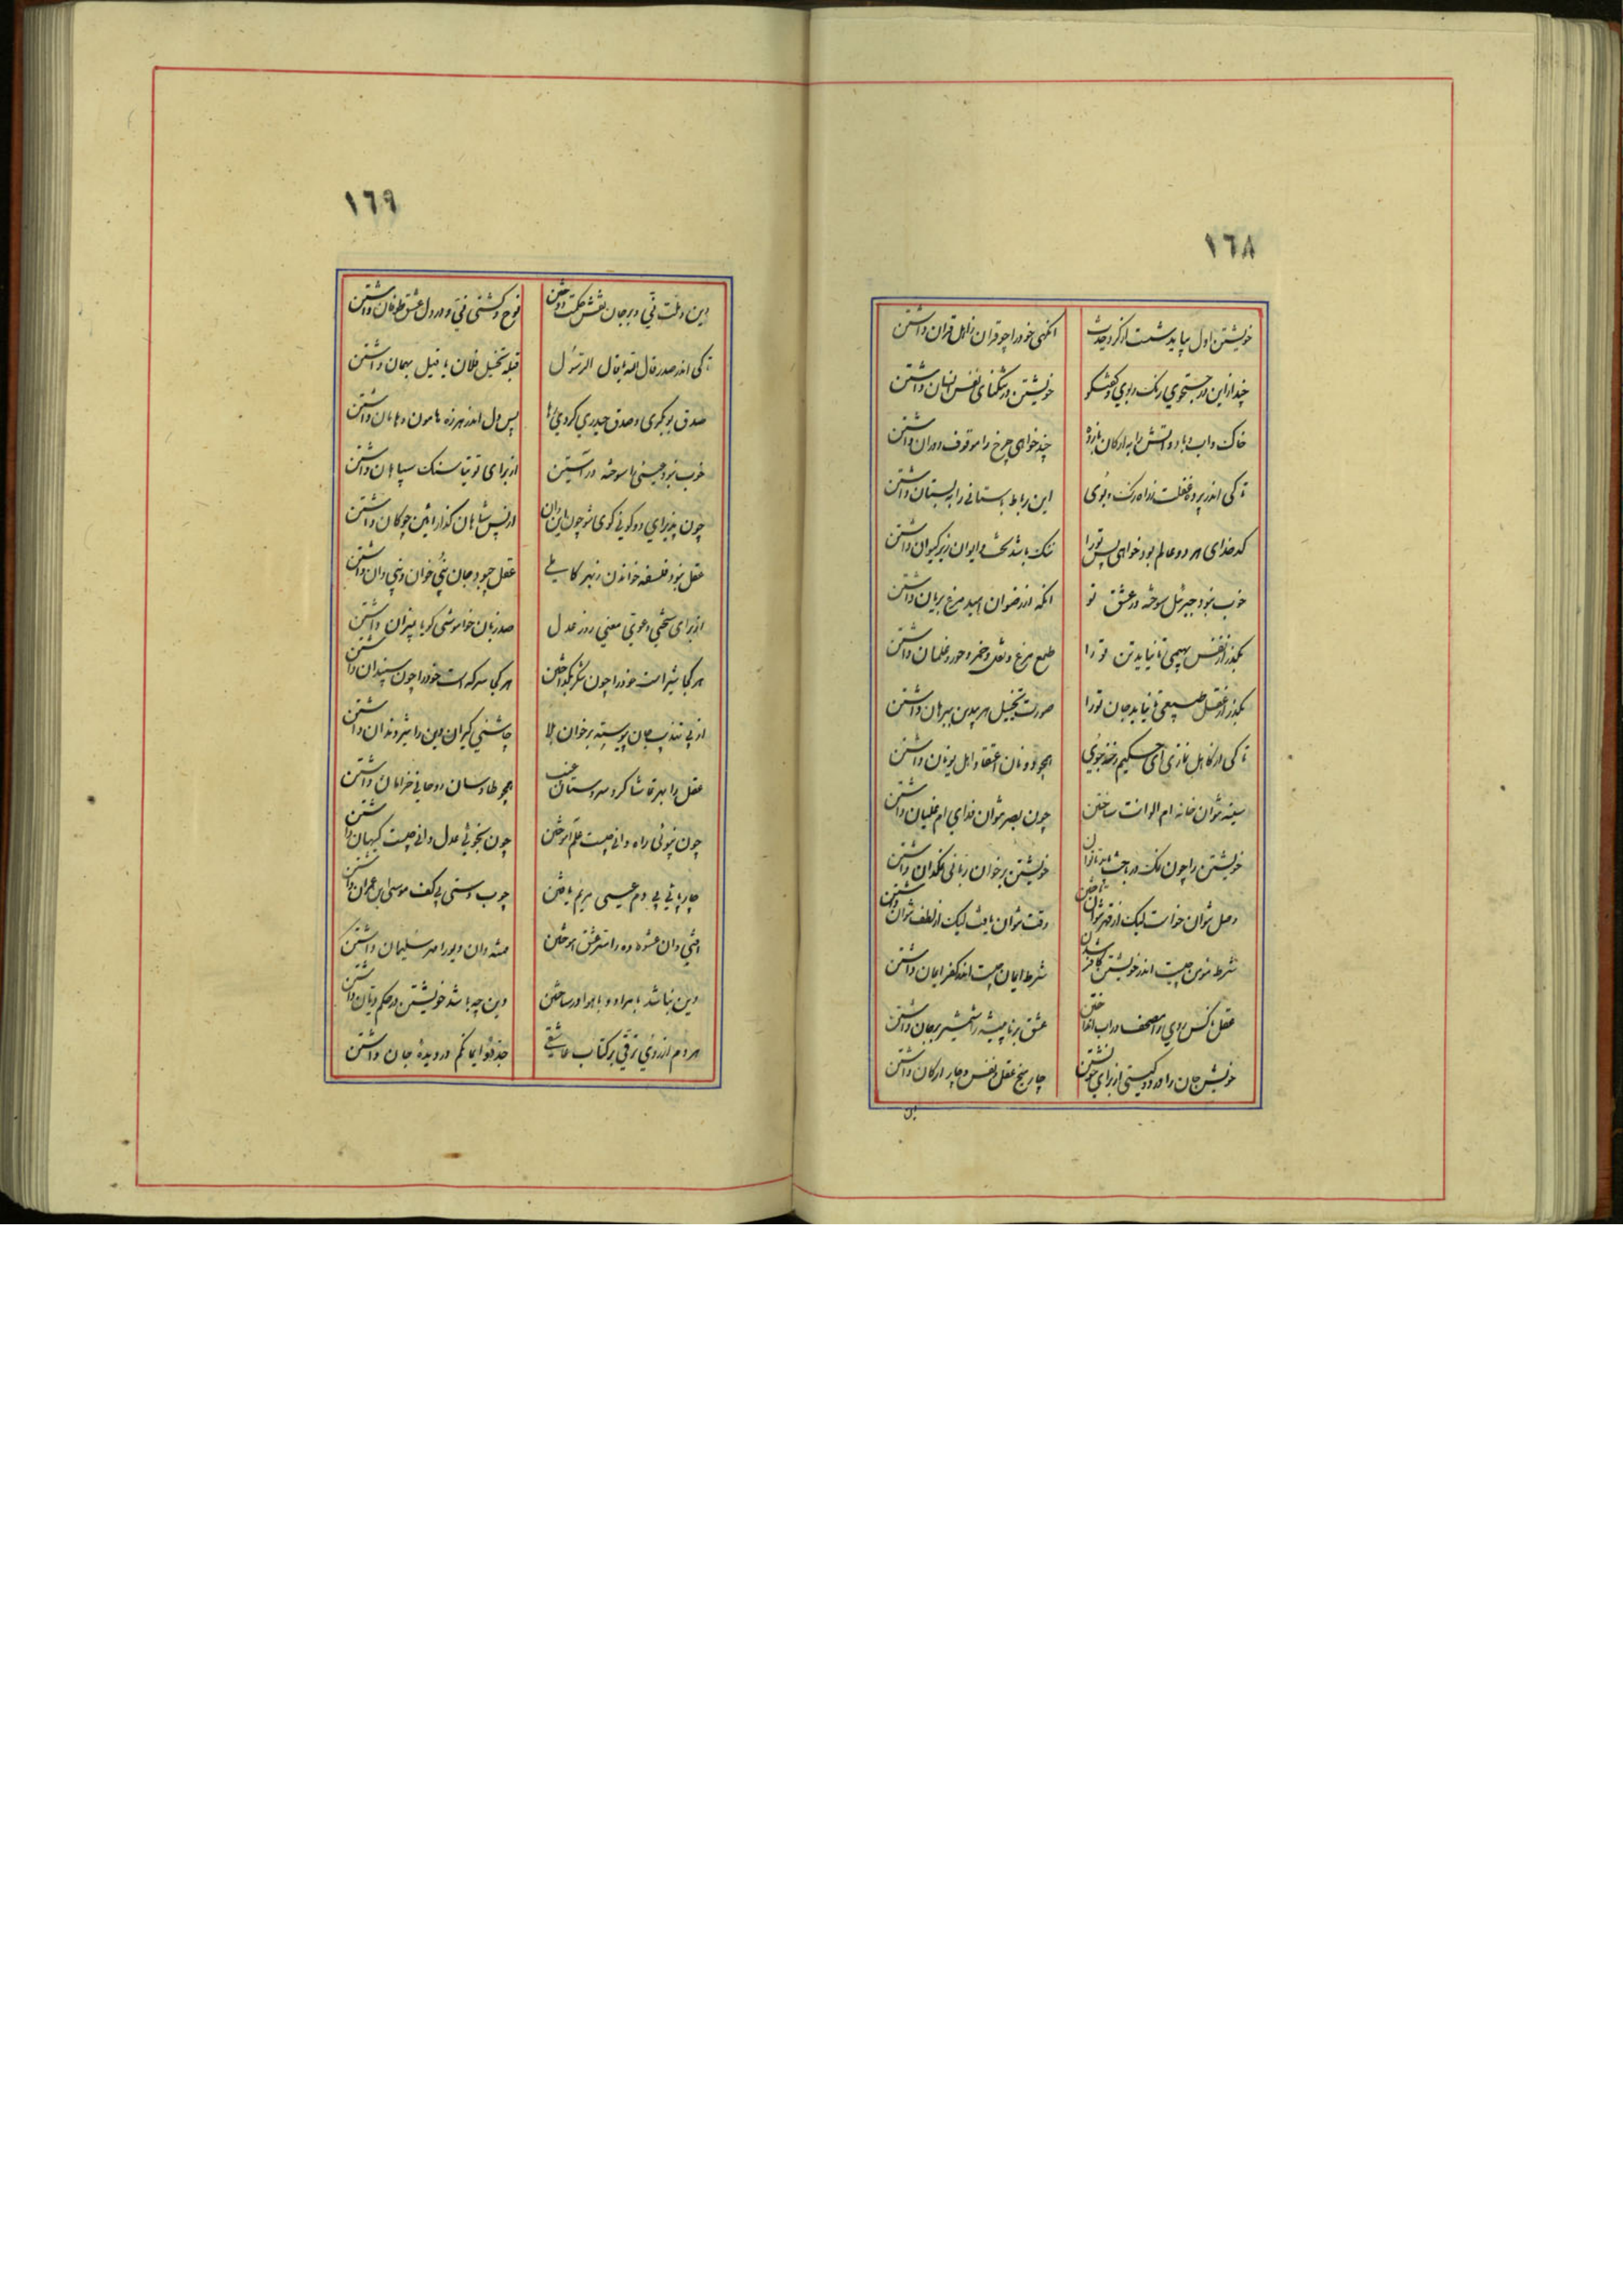 ١٦٨
خویشتن اول بباید شست از گرد حدث
آنگهی خود را چو قران ز اهل قران داشتن
چند ازاین در جستجوی رنک و بوی و کفتکو
خویشتن در تنکنای نفس انسان داشتن
خاک و اب و باد و اتش را به ارکان باز ده
چند خواهی چرخ را موقوف دوران داشتن
تا کی اندر پرده غفلت ز راه رنک و بوی
این رباط باستانی را به بستان داشتن
کدخدای هر دو عالم بود خواهی پس تو را
ننک باشد تخت و ایوان زیر کیوان داشتن
خوب نبود جبرئیل سوخته در عشق تو
انکه از رضوان امید مرغ بریان داشتن
بگذر از نفس بهیمی تا نباید تن تو را
طمع مرغ و نقل و خمر و حور و غلمان داشتن
بکذر از عقل طبیعی تا نباید جان تو را
صورت تخییل هر بیدین ببرهان داشتن
تا کی از کاهل نمازی ای حکیم زخنه جوی
همچو دونان اعتقاد اهل یونان داشتن
سینه نتوان خانه ام الوانت ساختن
چون بصر نتوان فدای ام غیلان داشتن
خویشتن را چون نمک در
خویشتن بر خوان ربانی نمکدان داشتن
وصل نتوان خواست لیک از قهر نتوان
وقت نتوان یافت لیک از لطف نتوان داشتن
شرط مومن چیست اندر خویشتن کافر شدن
شرط ایمان چیست اندر کفر ایمان داشتن
عقل ناکس روی را مصحف در آب انداختن
عشق برنا پیشه را شمشیر بر جان داشتن
خویش جان را در دو کیتی از برای خویشتن
چار میخ عقل و نفس و چار ارکان داشتن
١٦٩
دین و ملت نی و بر جان نقش حکمت دوختن
نوح و کشتی نی و در دل عشق طوفان داشتن
تا کی اندر صدر قال الله یا قال الرسول
قبله تخییل فلان یا قیل بهمان داشتن
صدق بوبکری و صدق حیدری کردی رها
پس دل اندر زمره هامون و هامان داشتن
خوب نبود عیسی را سوخته در آستین
از برای توتیا سنک سپاهان داشتن
چون پذیرای دو کونی کوی شو چون این و ان
از پس شاهان کذار ائین چوکان داشتن
عقل نبود فلسفه خواندن ز بهر کاملی
عقل چبود جان نبی خوان و نبی دان داشتن
از برای سختی دعوی معنی روز عدل
صد زبان خاموشی کویا بمیزان داشتن
هر کجا شیر است خود را چون شکر بگداختن
هر کجا سرکه است خود را چون سپندان داشتن
از پی تهذیب جان پیوسته بر خوان بلا
چاشنی کیران دین را تیز دندان داشتن
عقل را بهر تماشا کرد سروستان غیب
همچو طاوسان روحانی خرامان داشتن
چون نبوئی راه دانی چیست علم آموختن
چون نجوئی عدل دانی چیست کیهان داشتن
چارپائی بی دم عیسی مریم یافتن
چوب دستی بی کف موسی ابن عمران داشتن
افعی دان عشوه ده را سر عشق آموختن
مشه دان دیو را مهر سلیمان داشتن
دین نباشد با مراد و با هوا درساختن
دین چه باشد خویشتن در حکم دیان داشتن
هر دم از روی ترقی بر کتاب عاشقی
جددوا ایمانکم در دیده جان داشتن